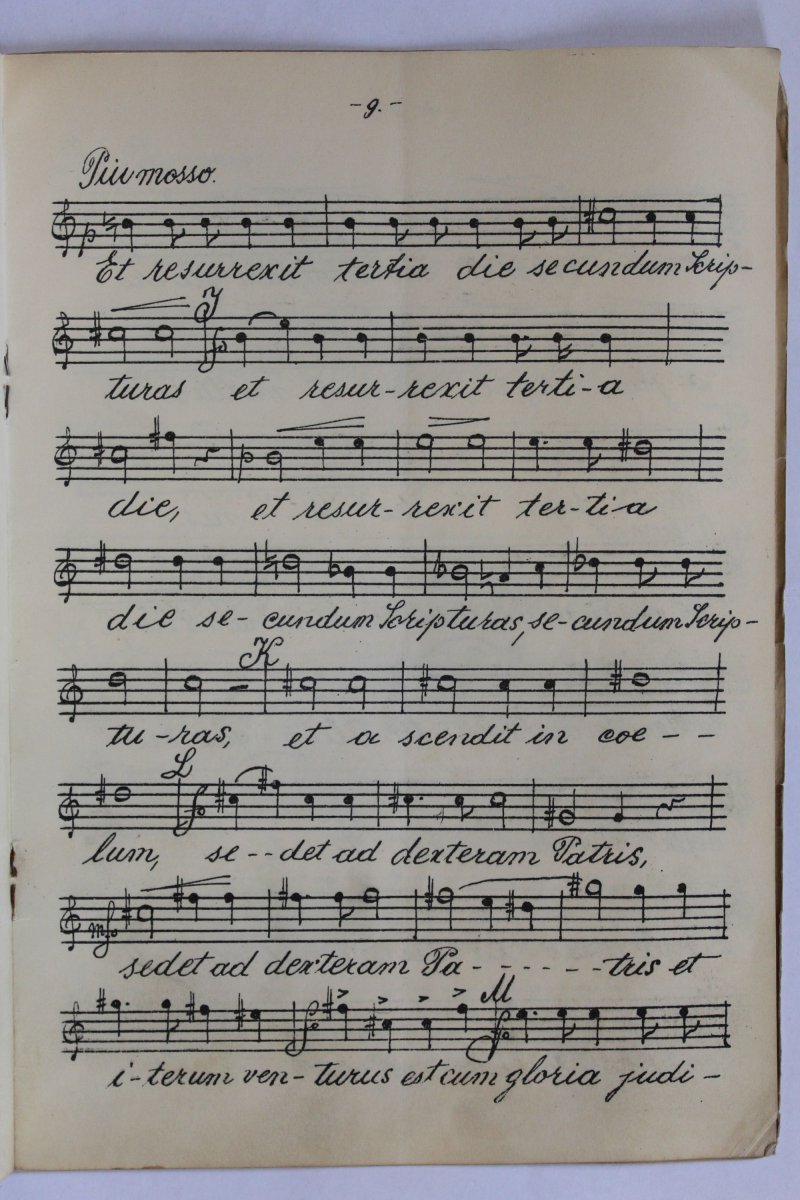 -9.-
Piu mosso.
p
Et resurrexit tertia die secundum Scrip-
J
f
turas et resur-rexit terti-a
die, et resur-rexit ter-ti-a
die se- cundum Scripturas, se-cundum Scrip-
K
tu-ras, et a scendit in coe - -
L
f
lum, se--det ad dexteram Patris,
mf
sedet ad dexteram Pa- - - - - -tris et
M
f f
i-terum ven-turus est cum gloria judi-